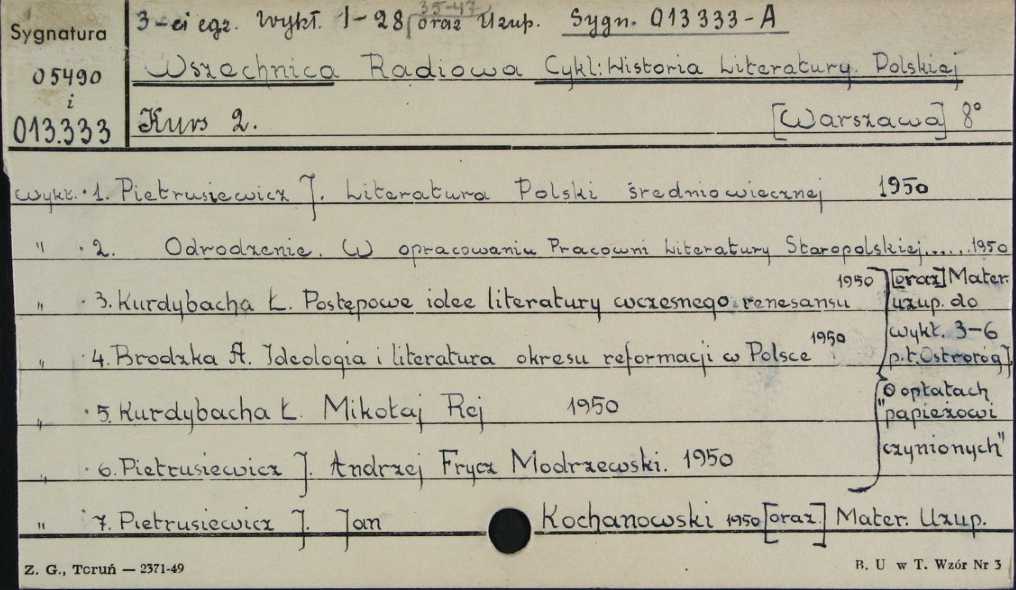 35-47
3-ci egz. Wykł. 1-28 oraz Uzup. Sygn. 013333-A
Sygnatura
05490
i
013.333
Wszechnica Radiowa Cykl: Historia Literatury Polskiej
Kurs 2. [Warszawa] 8°
wykł. 1. Pietrusiewicz J. Literatura Polski średniowiecznej 1950
" 2. Odrodzenie. W opracowaniu Pracowni Literatury Staropolskiej...... 1950
" 3. Kurdybacha Ł. Postępowe idee literatury wczesnego renesansu 1950
" 4. Brodzka A. Ideologia i literatura okresu reformacji w Polsce 1950
[oraz] Mater.
uzup. do
wykł. 3-6
p.t. Ostroróg J.
" 5. Kurdybacha Ł. Mikołaj Rej 1950
" 6. Pietrusiewicz J. Andrzej Frycz Modrzewski. 1950
O opłatach
"papieżowi
czynionych"
" 7. Pietrusiewicz J. Jan Kochanowski 1950 [oraz] Mater. Uzup.
Z. G., Toruń — 2371-49
B. U w T. Wzór Nr 3